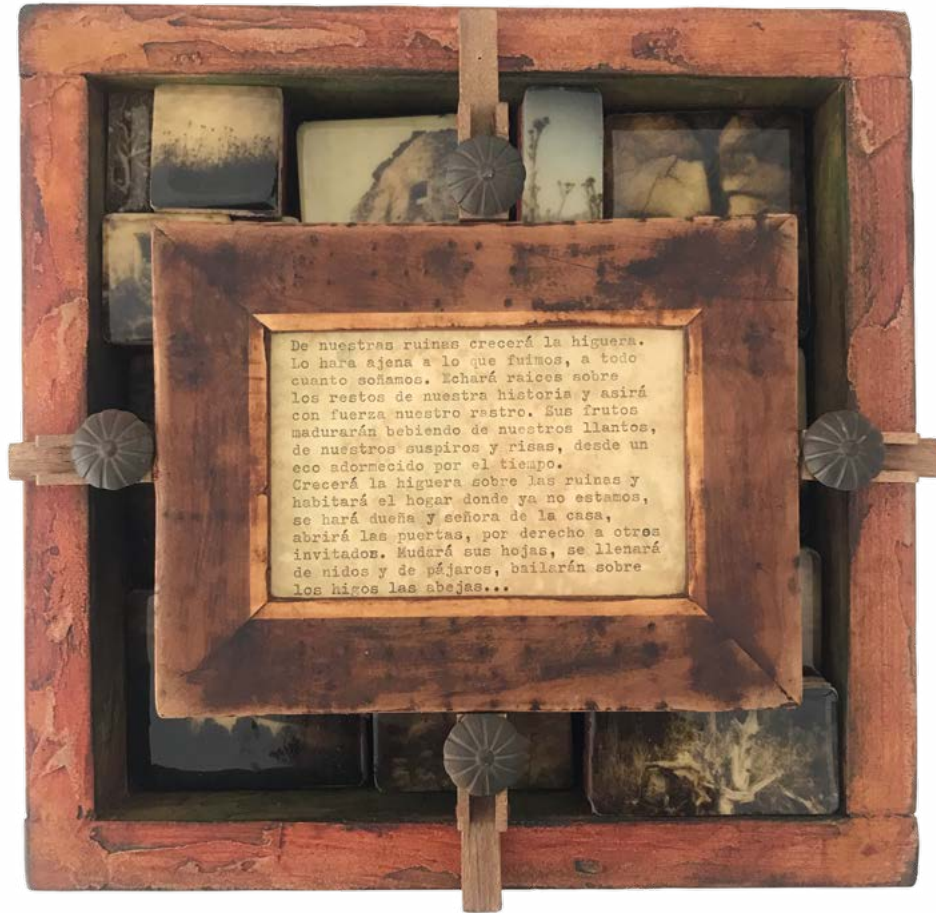 De nuestras ruinas crecerá la higuera.
Lo hara ajena a lo que fuimos, a todo
cuanto soñamos. Echará raices sobre
los restos de nuestra historia y asirá
con fuerza nuestro rastro. Sus frutos
madurarán bebiendo de nuestros llantos,
de nuestros suspiros y risas, desde un
eco adormecido por el tiempo.
Crecerá la higuera sobre las ruinas y
habitará el hogar donde ya no estamos,
se hará dueña y señora de la casa,
abrirá las puertas, por derecho a otros
invitados. Mudará sus hojas, se llenará
de nidos y de pájaros, bailarán sobre
los higos las abejas...